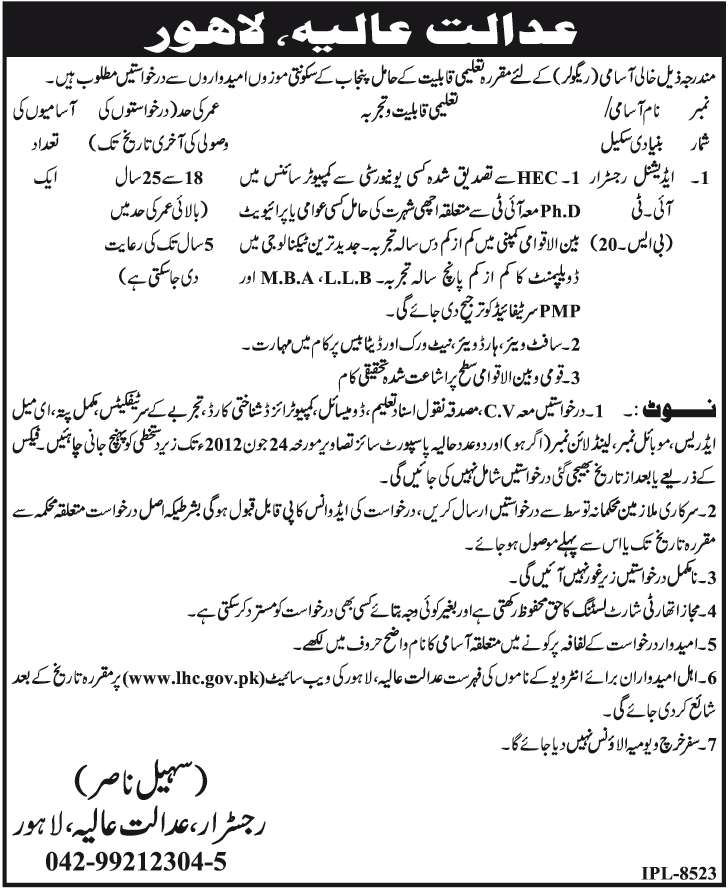 عدالت عالیہ، لاہور
مندرجہ ذیل خالی آسامی (ریگولر) کے لئے مقررہ تعلیمی قابلیت کے حامل پنجاب کے سکونتی موزوں امیدواروں سے درخواستیں مطلوب ہیں۔
نمبر شمار
نام آسامی/ بنیادی سکیل
تعلیمی قابلیت و تجربہ
عمر کی حد (درخواستوں کی وصولی کی آخری تاریخ تک)
آسامیوں کی تعداد
1۔
ایڈیشنل رجسٹرار
آئی۔ٹی
(بی ایس۔20)
1۔ HEC سے تصدیق شدہ کسی یونیورسٹی سے کمپیوٹر سائنس میں
Ph.D معہ آئی ٹی سے متعلقہ اچھی شہرت کی حامل کسی عوامی یا پرائیویٹ
بین الاقوامی کمپنی میں کم از کم دس سالہ تجربہ۔ جدید ترین ٹیکنالوجی میں
ڈویلپمنٹ کا کم از کم پانچ سالہ تجربہ۔ M.B.A ،L.L.B اور
PMP سرٹیفائیڈ کو ترجیح دی جائے گی۔
2۔ سافٹ ویئر، ہارڈ ویئر، نیٹ ورک اور ڈیٹا بیس پر کام میں مہارت۔
3۔ قومی و بین الاقوامی سطح پر اشاعت شدہ تحقیقی کام
18 سے 25 سال
(بالائی عمر کی حد میں
5 سال تک کی رعایت
دی جا سکتی ہے)
ایک
نوٹ:۔ 1۔ درخواستیں معہ C.V، مصدقہ نقول اسناد تعلیم، ڈومیسائل، کمپیوٹرائزڈ شناختی کارڈ، تجربے کے سرٹیفکیٹس، مکمل پتہ، ای میل
ایڈریس، موبائل نمبر، لینڈ لائن نمبر (اگر ہو) اور دو عدد حالیہ پاسپورٹ سائز تصاویر مورخہ 24 جون 2012ء تک زیر دستخطی کو پہنچ جانی چاہئیں۔ فیکس
کے ذریعے یا بعد از تاریخ بھیجی گئی درخواستیں شامل نہیں کی جائیں گی۔
2۔ سرکاری ملازمین محکمانہ توسط سے درخواستیں ارسال کریں، درخواست کی ایڈوانس کاپی قابل قبول ہوگی بشرطیکہ اصل درخواست متعلقہ محکمہ سے
مقررہ تاریخ تک یا اس سے پہلے موصول ہو جائے۔
3۔ نامکمل درخواستیں زیر غور نہیں آئیں گی۔
4۔ مجاز اتھارٹی شارٹ لسٹنگ کا حق محفوظ رکھتی ہے اور بغیر کوئی وجہ بتائے کسی بھی درخواست کو مسترد کر سکتی ہے۔
5۔ امیدوار درخواست کے لفافہ پر کونے میں متعلقہ آسامی کا نام واضح حروف میں لکھے۔
6۔ اہل امیدواران برائے انٹرویو کے ناموں کی فہرست عدالت عالیہ، لاہور کی ویب سائیٹ (www.lhc.gov.pk) پر مقررہ تاریخ کے بعد
شائع کر دی جائے گی۔
7۔ سفر خرچ و یومیہ الاؤنس نہیں دیا جائے گا۔
(سہیل ناصر)
رجسٹرار، عدالت عالیہ، لاہور
042-99212304-5
IPL-8523